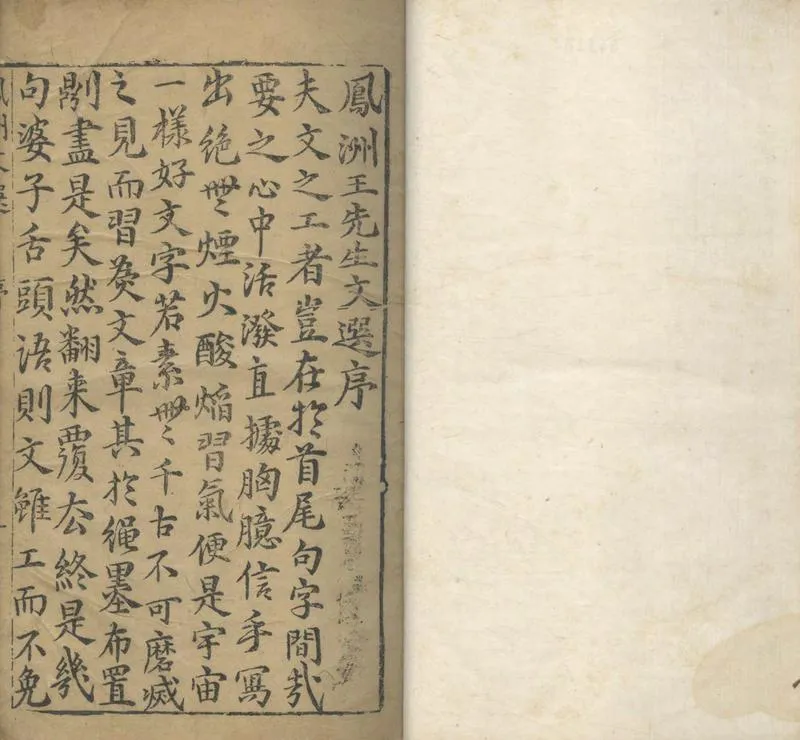 鳳洲王先生文選序
夫文之工者豈在於首尾句字間哉
要之心中活潑直據胸臆信手寫
出絶無煙火酸焰習氣便是宇宙
一樣好文字若素無千古不可磨滅
之見而習為文章其於繩墨布置
剔盡是矣然翻來覆去終是幾
句婆子舌頭語則文雖工而不免